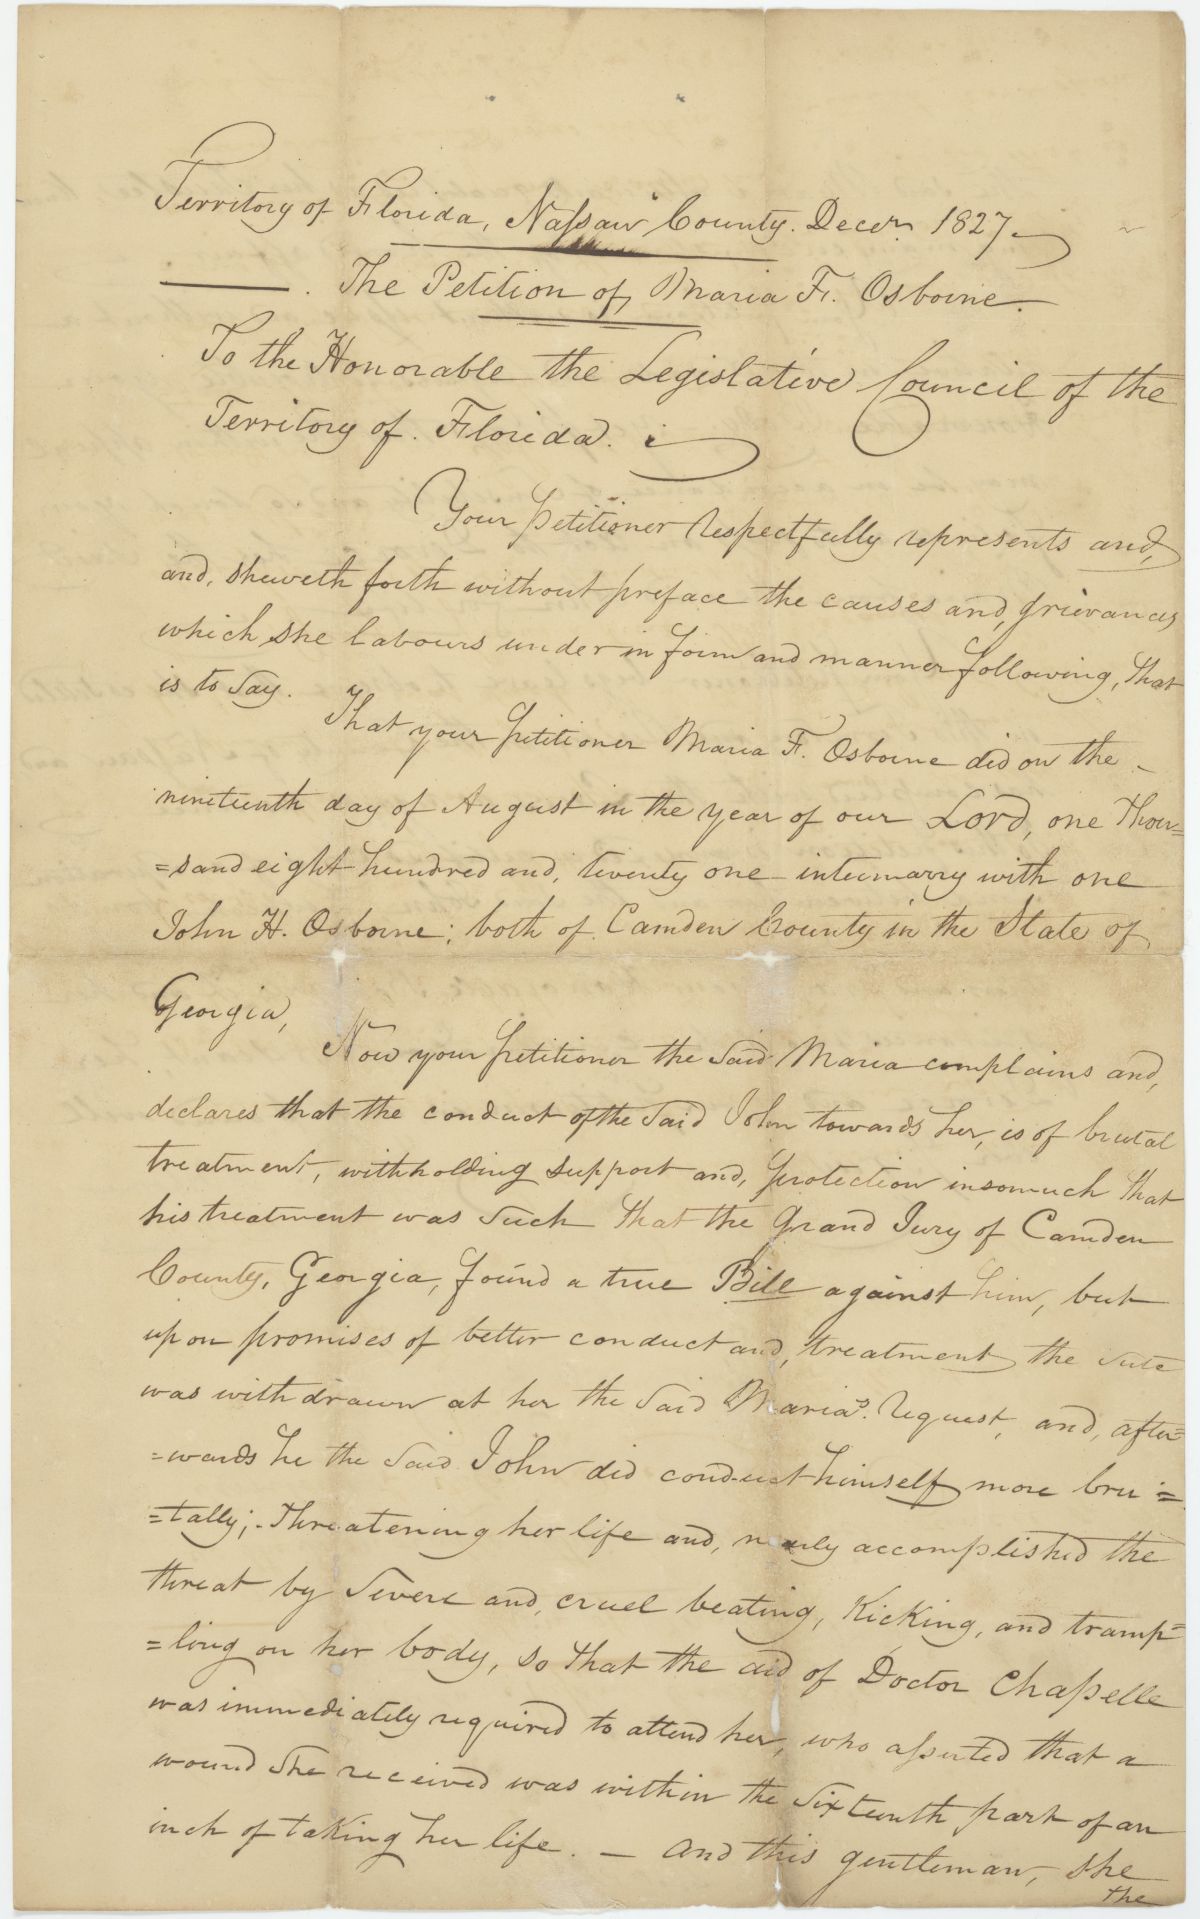 Territory of Florida, Nassau County. Decem. 1827.
The Petition of Maria F. Osborne.
To the Honorable the Legislative Council of the
Territory of Florida.
Your petitioner respectfully represents and,
and, sheweth forth without preface the causes and, grievances
which she labours under in form and manner following, that
is to say.
That your petitioner Maria F. Osborne did on the
nineteenth day of August in the year of our Lord, one thou=
=sand eight hundred and, twenty one intermarry with one
John H. Osborne; both of Camden County in the State of
Georgia,
Now your petitioner the said Maria complains and,
declares that the conduct of the said John towards her, is of brutal
treatment, withholding support and, protection insomuch that
his treatment was such that the Grand Jury of Camden
County, Georgia, found a true Bill against him, but
upon promises of better conduct and, treatment the sute
was withdrawn at her the said Marias. request, and, after=
=wards he the said John did conduct himself more bru=
=tally; threatening her life and, nearly accomplished the
threat by severe and, cruel beating, Kicking, and tramp=
=ling on her body, so that the aid of Doctor Chapelle
was immediately required to attend her, who asserted that a
wound she received was within the sixteenth part of an
inch of taking her life. — and this gentleman, she
the